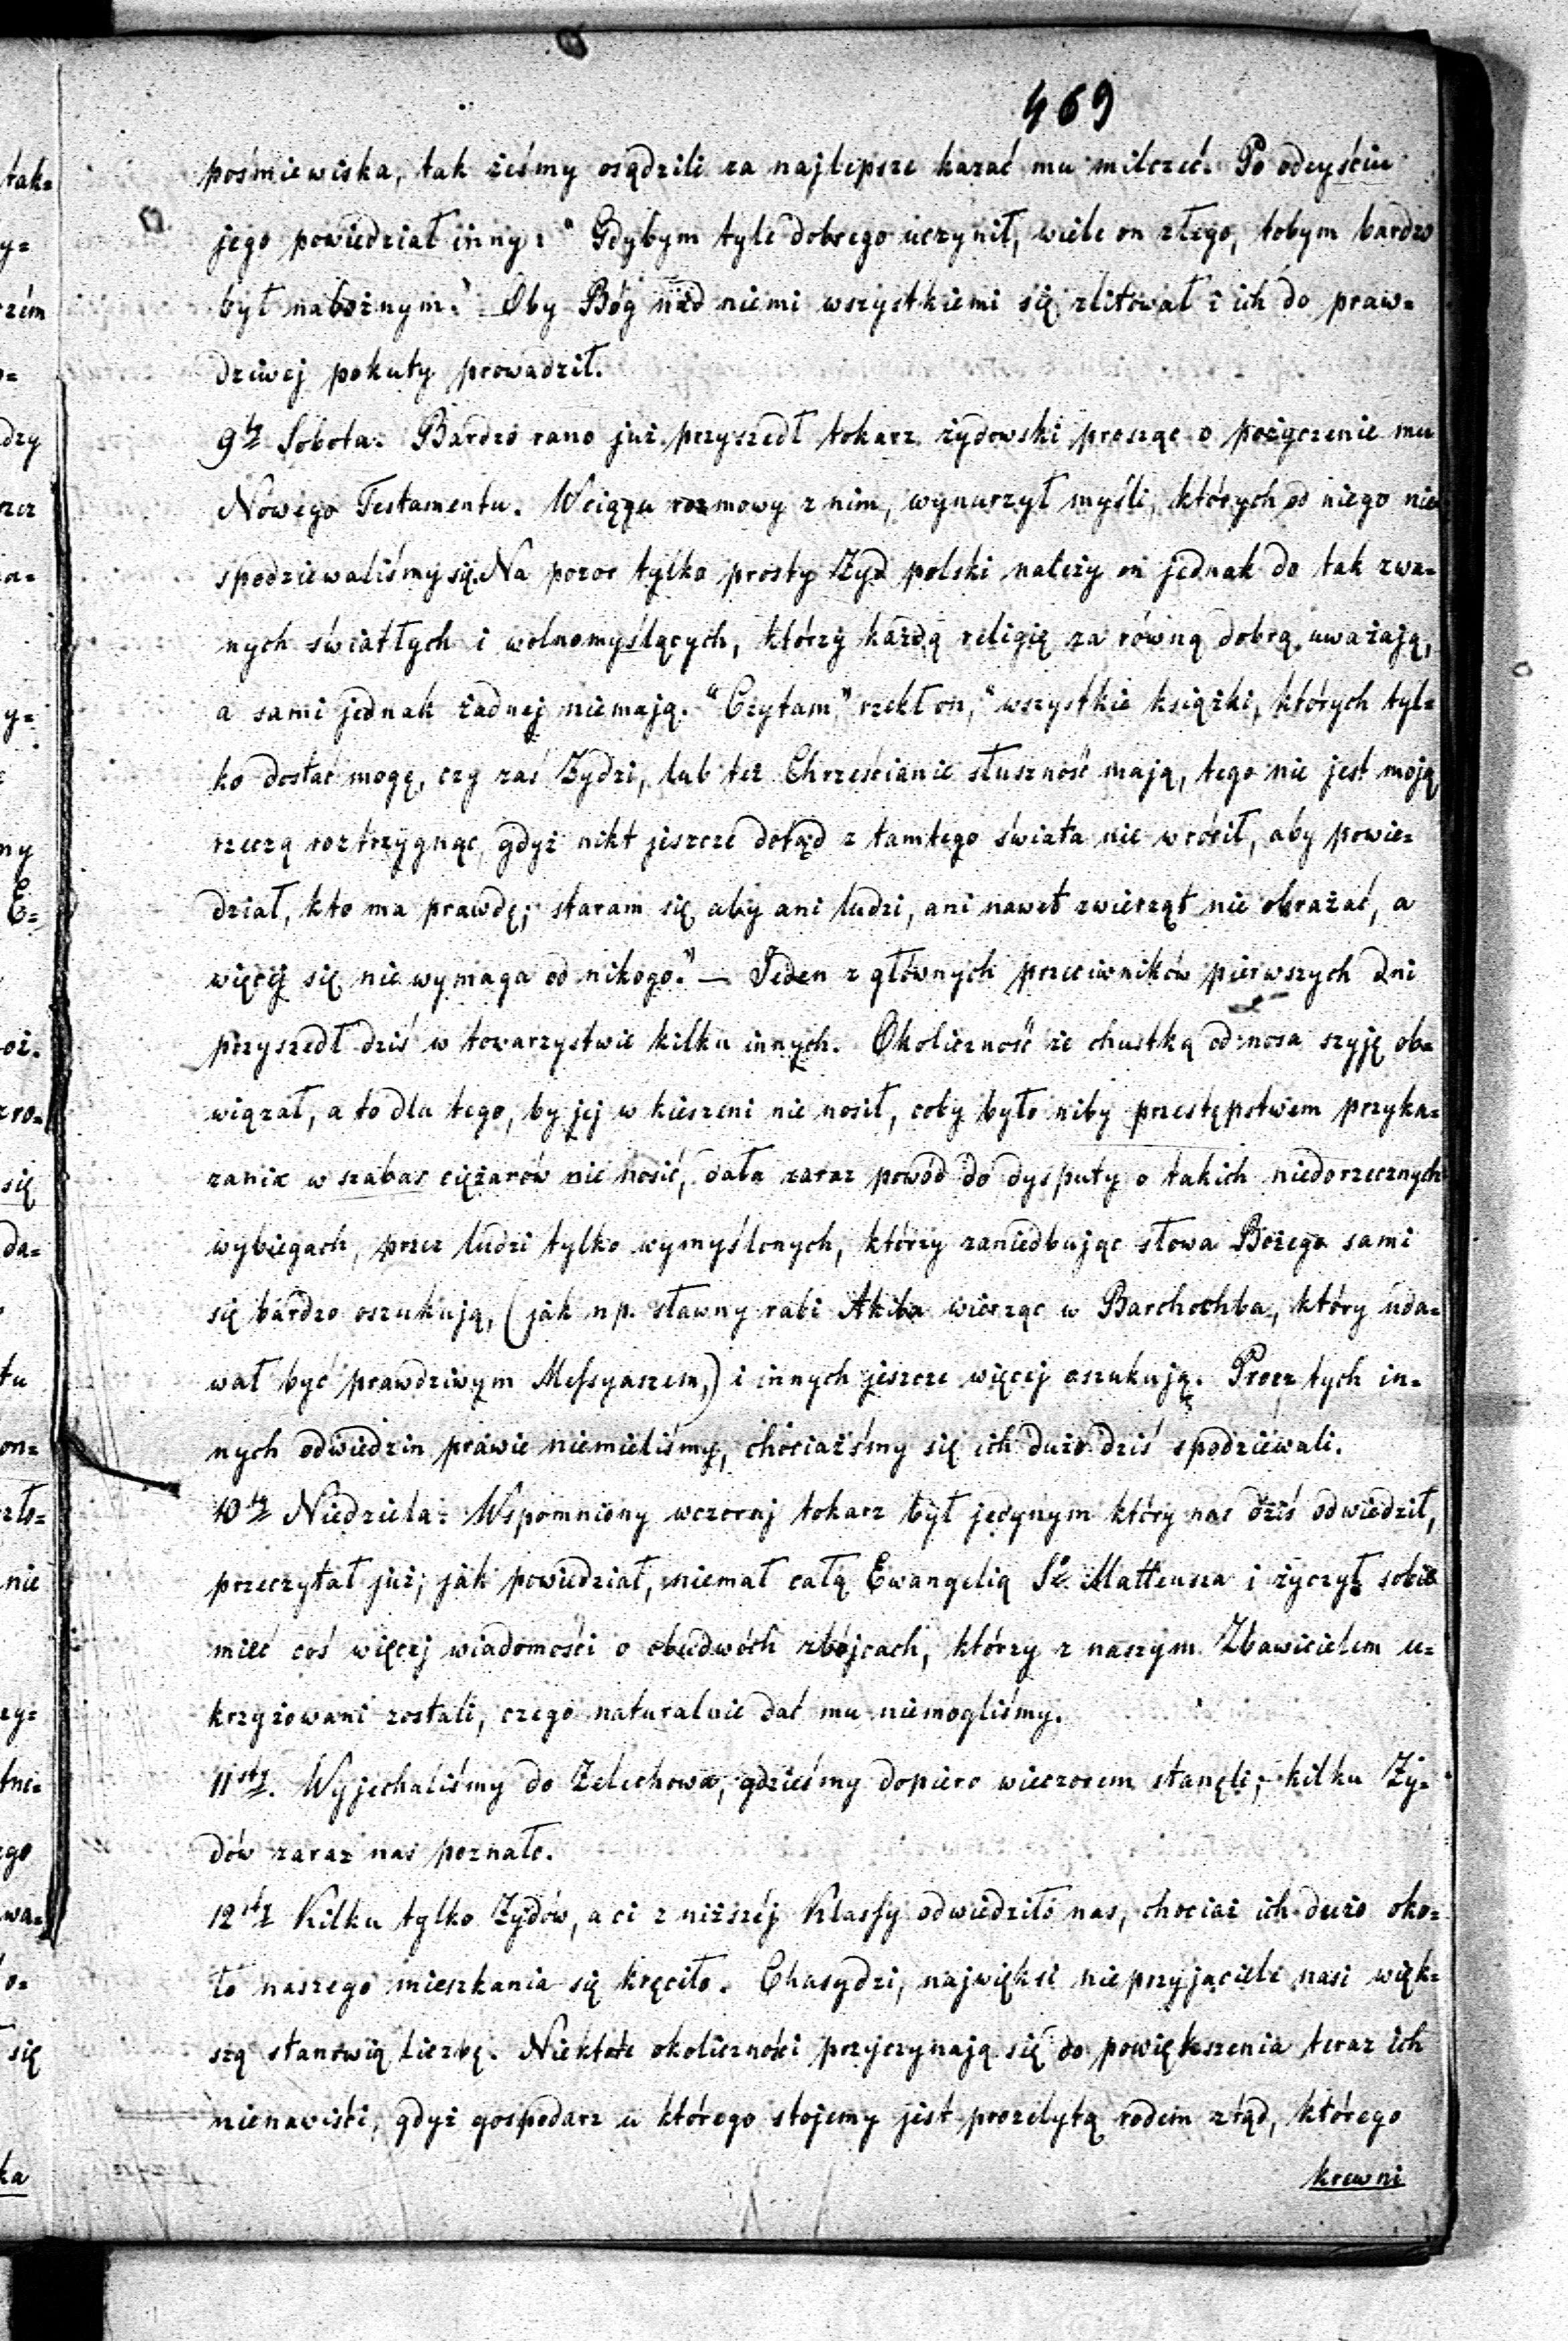 469
pośmiewiska, tak żeśmy osądzili za najlepsze kazać mu milczeć. Po odeyściu
jego powiedział inny: "Gdybym tyle dobrego uczynił, wiele on złego, tobym bardzo
był nabożnym." Oby Bóg nad niemi wszystkiemi się zlitował i ich do praw=
dziwej pokuty prowadził.
9ty Sobota. Bardzo rano już przyszedł tokarz żydowski prosząc o pożyczenie mu
Nowego Testamentu. Wciągu rozmowy z nim, wynurzył myśli, których od niego nie
spodziewaliśmy się. Na pozor tylko prosty Żyd polski należy on jednak do tak zwa=
nych światłych i wolnomyślących, którzy każdą religię za równą dobrą uważają,
a sami jednak żadnej niemają. "Czytam," rzekł on, "wszystkie książki, których tyl=
ko dostać mogę, czy zaś Żydzi, lub też Chrześcianie słuszność mają, tego nie jest moją
rzeczą roztrzygnąc, gdyż nikt jeszcze dotąd z tamtego świata nie wrócił, aby powie=
dział, kto ma prawdę; staram się aby ani ludzi, ani nawet zwierząt nie obrażać, a
więcej się nie wymaga od nikogo." — Jeden z głównych przeciwników pierwszych dni
przyszedł dziś w towarzystwie kilku innych. Okoliczność że chustką od nosa szyję ob=
wiązał, a to dla tego, by jej w kieszeni nie nosił, coby było niby przestępstwem przyka=
zania w szabas ciężarów nie nosić, dała zaraz powód do dysputy o takich niedorzecznych
wybiegach, przez ludzi tylko wymyślonych, którzy zaniedbując słowa Bożego sami
się bardzo oszukują, (jak np. sławny rabi Akiba wierząc w Barchochba, który uda=
wał być prawdziwym Messyaszem,) i innych jeszcze więcej oszukują. Procz tych in=
nych odwiedzin prawie niemieliśmy, chociażśmy się ich dużo dziś spodziewali.
10ty Niedziela: Wspomniony wczoraj tokarz był jedynym który nas dziś odwiedził,
przeczytał już, jak powiedział, niemal całą Ewangelią Sź. Matteusza i życzył sobie
mieć coś więcej wiadomości o obudwóch zbójcach, którzy z naszym Zbawicielem u=
krzyżowani zostali, czego naturalnie dać mu niemogliśmy.
11sty. Wyjechaliśmy do Żelechowa, gdzieśmy dopiero wieczorem stanęli; kilku Ży=
dów zaraz nas poznało.
12sty Kilku tylko Żydów, a ci z niższéj Klassy odwiedziło nas, chociaż ich dużo oko=
ło naszego mieszkania się kręciło. Chasydzi, najwięksi nieprzyjaciele nasi więk=
szą stanowią liczbę. Niektóre okoliczności przyczynają się do powiększenia teraz ich
nienawiści, gdyż gospodarz u którego stojemy jest prozelytą rodem ztąd, którego
krewni